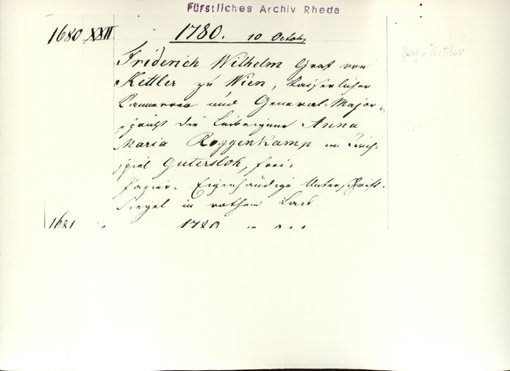 Fürstliches Archiv Rheda
1680 XXII
1780. 10 Octobr
Friderich Wilhelm Graf von
Kettler zu Wien, Kaiserlicher
Cammerer und General-Major,
spricht die Leibeigene Anna
Maria Roggenkamp im Kirch-
spiel Gutersloh, frei.
Papier. Eigenhändige Unterschrift.
Siegel in rothem Lack
1681
1780